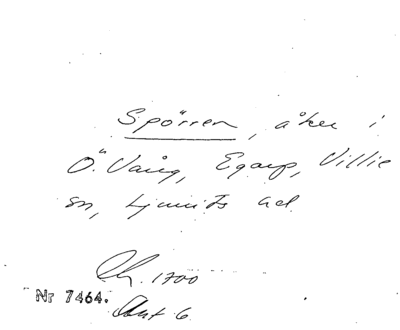 Spörren, åker i
Ö. Vång, Egarp, Villie
sn, Ljunits hd
1700
Nr 7464. Akt 6